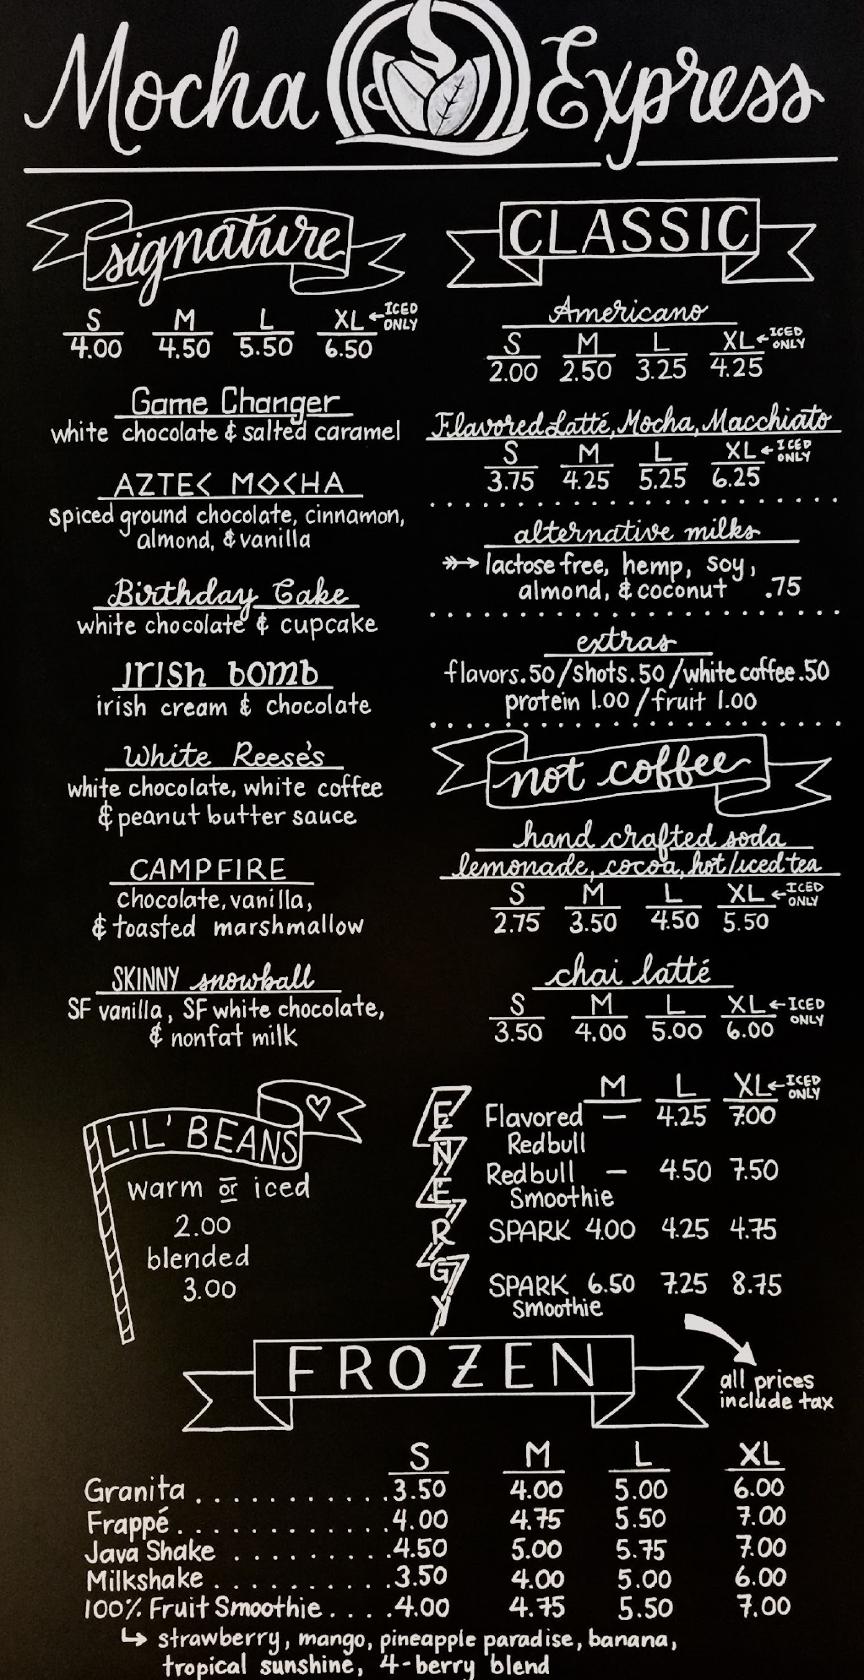 Mocha Express
signature
S M L XL ← ICED ONLY
4.00 4.50 5.50 6.50
Game Changer
white chocolate & salted caramel
AZTEC MOCHA
spiced ground chocolate, cinnamon,
almond, & vanilla
Birthday Cake
white chocolate & cupcake
Irish bomb
irish cream & chocolate
White Reese's
white chocolate, white coffee
& peanut butter sauce
CAMPFIRE
chocolate, vanilla,
& toasted marshmallow
SKINNY snowball
SF vanilla, SF white chocolate,
& nonfat milk
LIL' BEANS
warm or iced
2.00
blended
3.00
CLASSIC
Americano
S M L XL ← ICED ONLY
2.00 2.50 3.25 4.25
Flavored Latté, Mocha, Macchiato
S M L XL ← ICED ONLY
3.75 4.25 5.25 6.25
alternative milks
lactose free, hemp, soy,
almond, & coconut .75
extras
flavors .50 / shots .50 / white coffee .50
protein 1.00 / fruit 1.00
not coffee
hand crafted soda
lemonade, cocoa, hot/iced tea
S M L XL ← ICED ONLY
2.75 3.50 4.50 5.50
chai latté
S M L XL ← ICED ONLY
3.50 4.00 5.00 6.00
ENERGY
M L XL ← ICED ONLY
Flavored — 4.25 7.00
Redbull
Redbull — 4.50 7.50
Smoothie
SPARK 4.00 4.25 4.75
SPARK 6.50 7.25 8.75
Smoothie
all prices
include tax
FROZEN
S M L XL
Granita . . . . . . . . . . . . 3.50 4.00 5.00 6.00
Frappé . . . . . . . . . . . . . 4.00 4.75 5.50 7.00
Java Shake . . . . . . . . . . 4.50 5.00 5.75 7.00
Milkshake . . . . . . . . . . . 3.50 4.00 5.00 6.00
100% Fruit Smoothie . . . . 4.00 4.75 5.50 7.00
↳ strawberry, mango, pineapple paradise, banana,
tropical sunshine, 4-berry blend